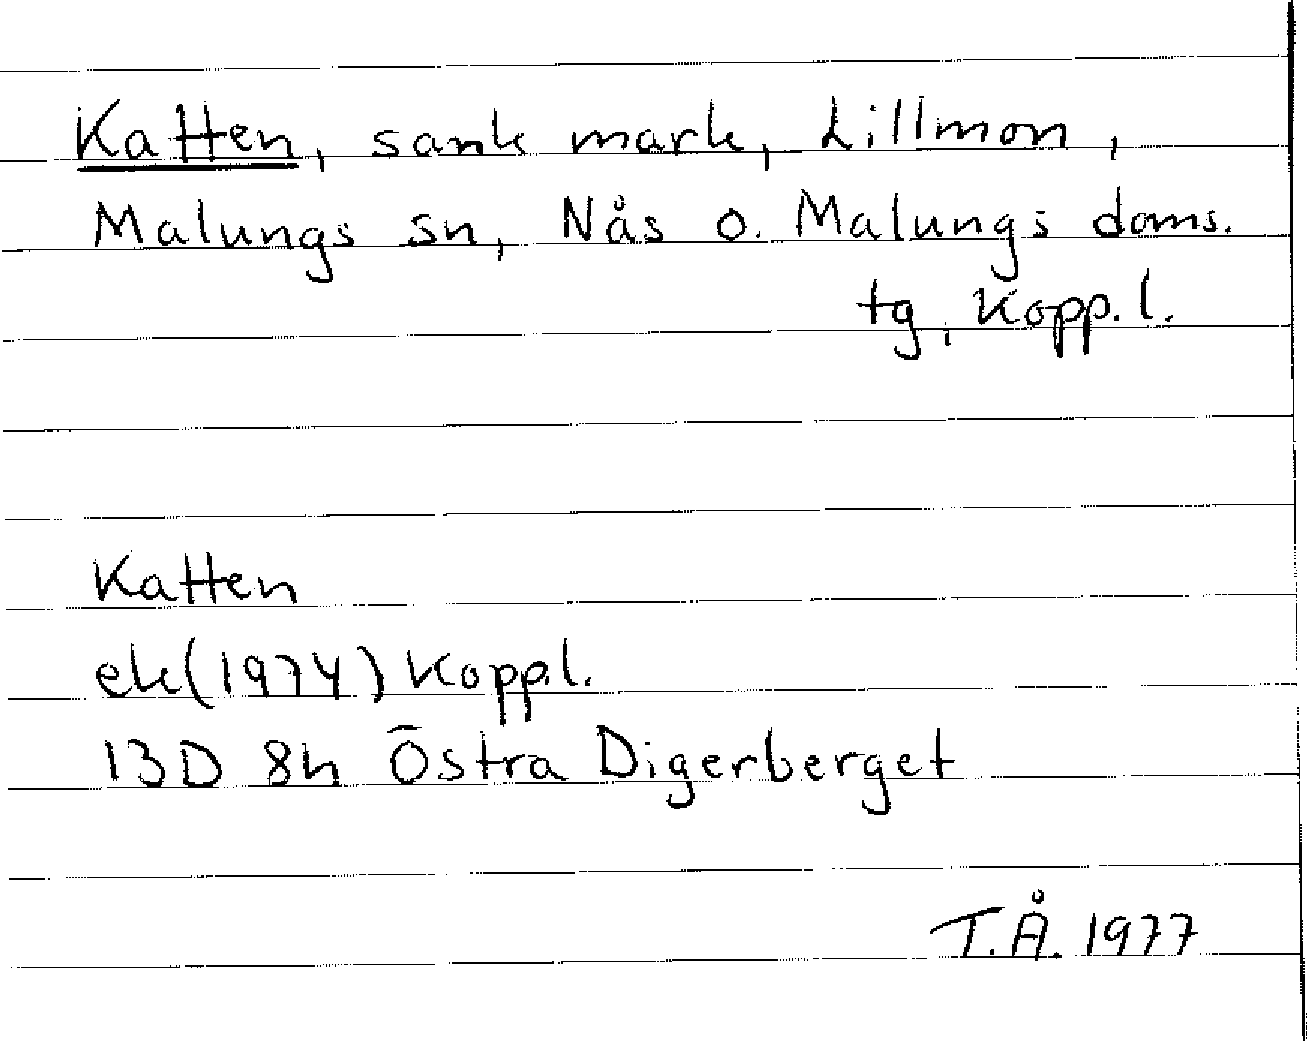 Katten, sank mark, Lillmon,
Malungs sn, Nås o. Malungs doms.
tg, Kopp.l.
Katten
ek(1974) Kopp.l.
13D 8h Östra Digerberget
T.Å. 1977